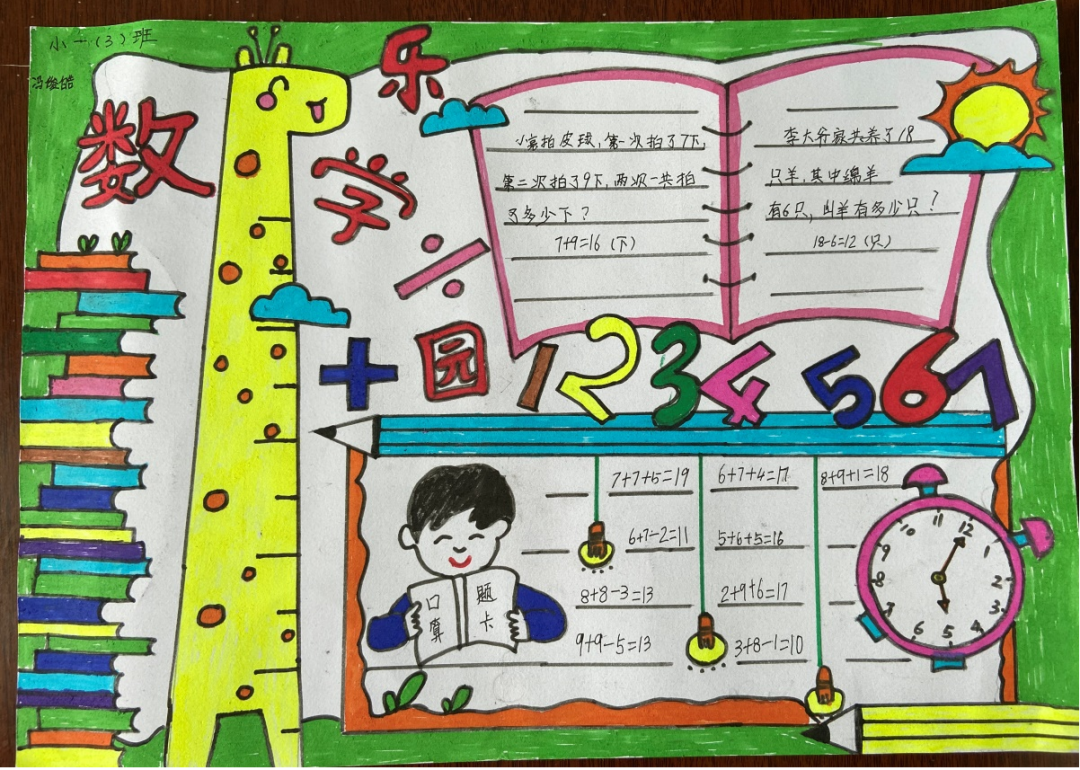 小一(3)班
冯维皓
数学乐园
÷
+
1 2 3 4 5 6 7
拍皮球,第一次拍了7下,
第二次拍了9下,两次一共拍
了多少下?
7+9=16(下)
李大爷家共养了18
只羊,其中绵羊
有6只,山羊有多少只?
18-6=12(只)
7+7+5=19
6+7+4=17
8+9+1=18
6+7-2=11
5+6+5=16
8+8-3=13
2+9+6=17
9+9-5=13
3+8-1=10
口算
题卡
12
1
2
3
4
5
6
7
8
9
10
11